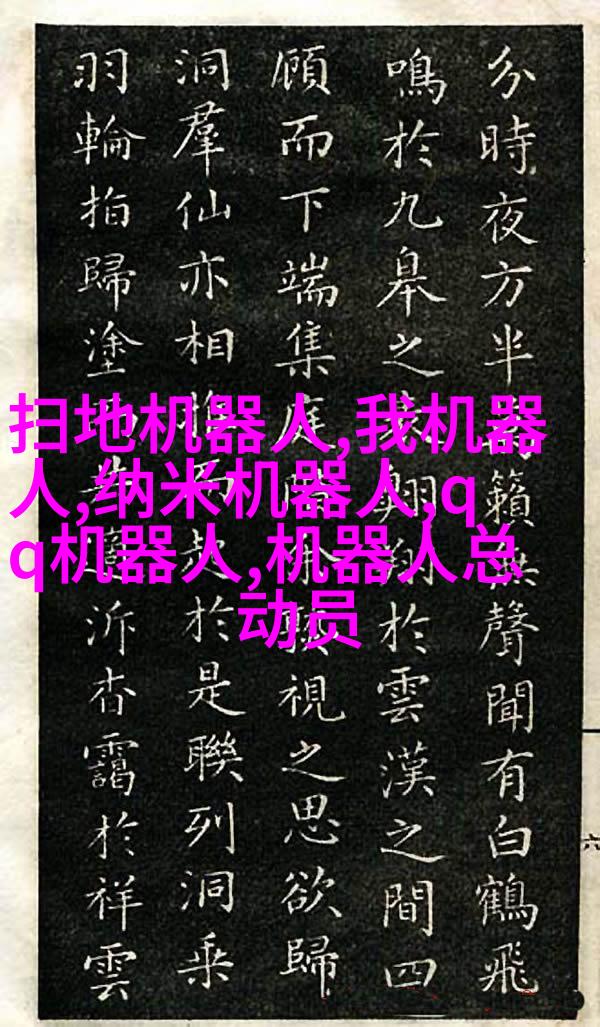 扫地机器人,我机器
人,纳米机器人,q
q机器人,机器人总
动员
分時夜方半籟聲聞有白鶴飛
鳴於九皋之翱翔於雲漢之間四
顧而下端集庭視之思欲歸
洞羣仙亦相於是聯列洞乘
羽輪指歸塗泝杳靄於祥雲
六